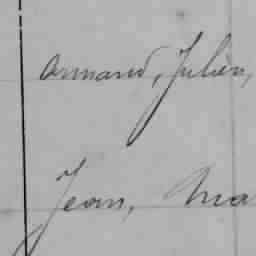 Armand, Julien,
Jean, Ma